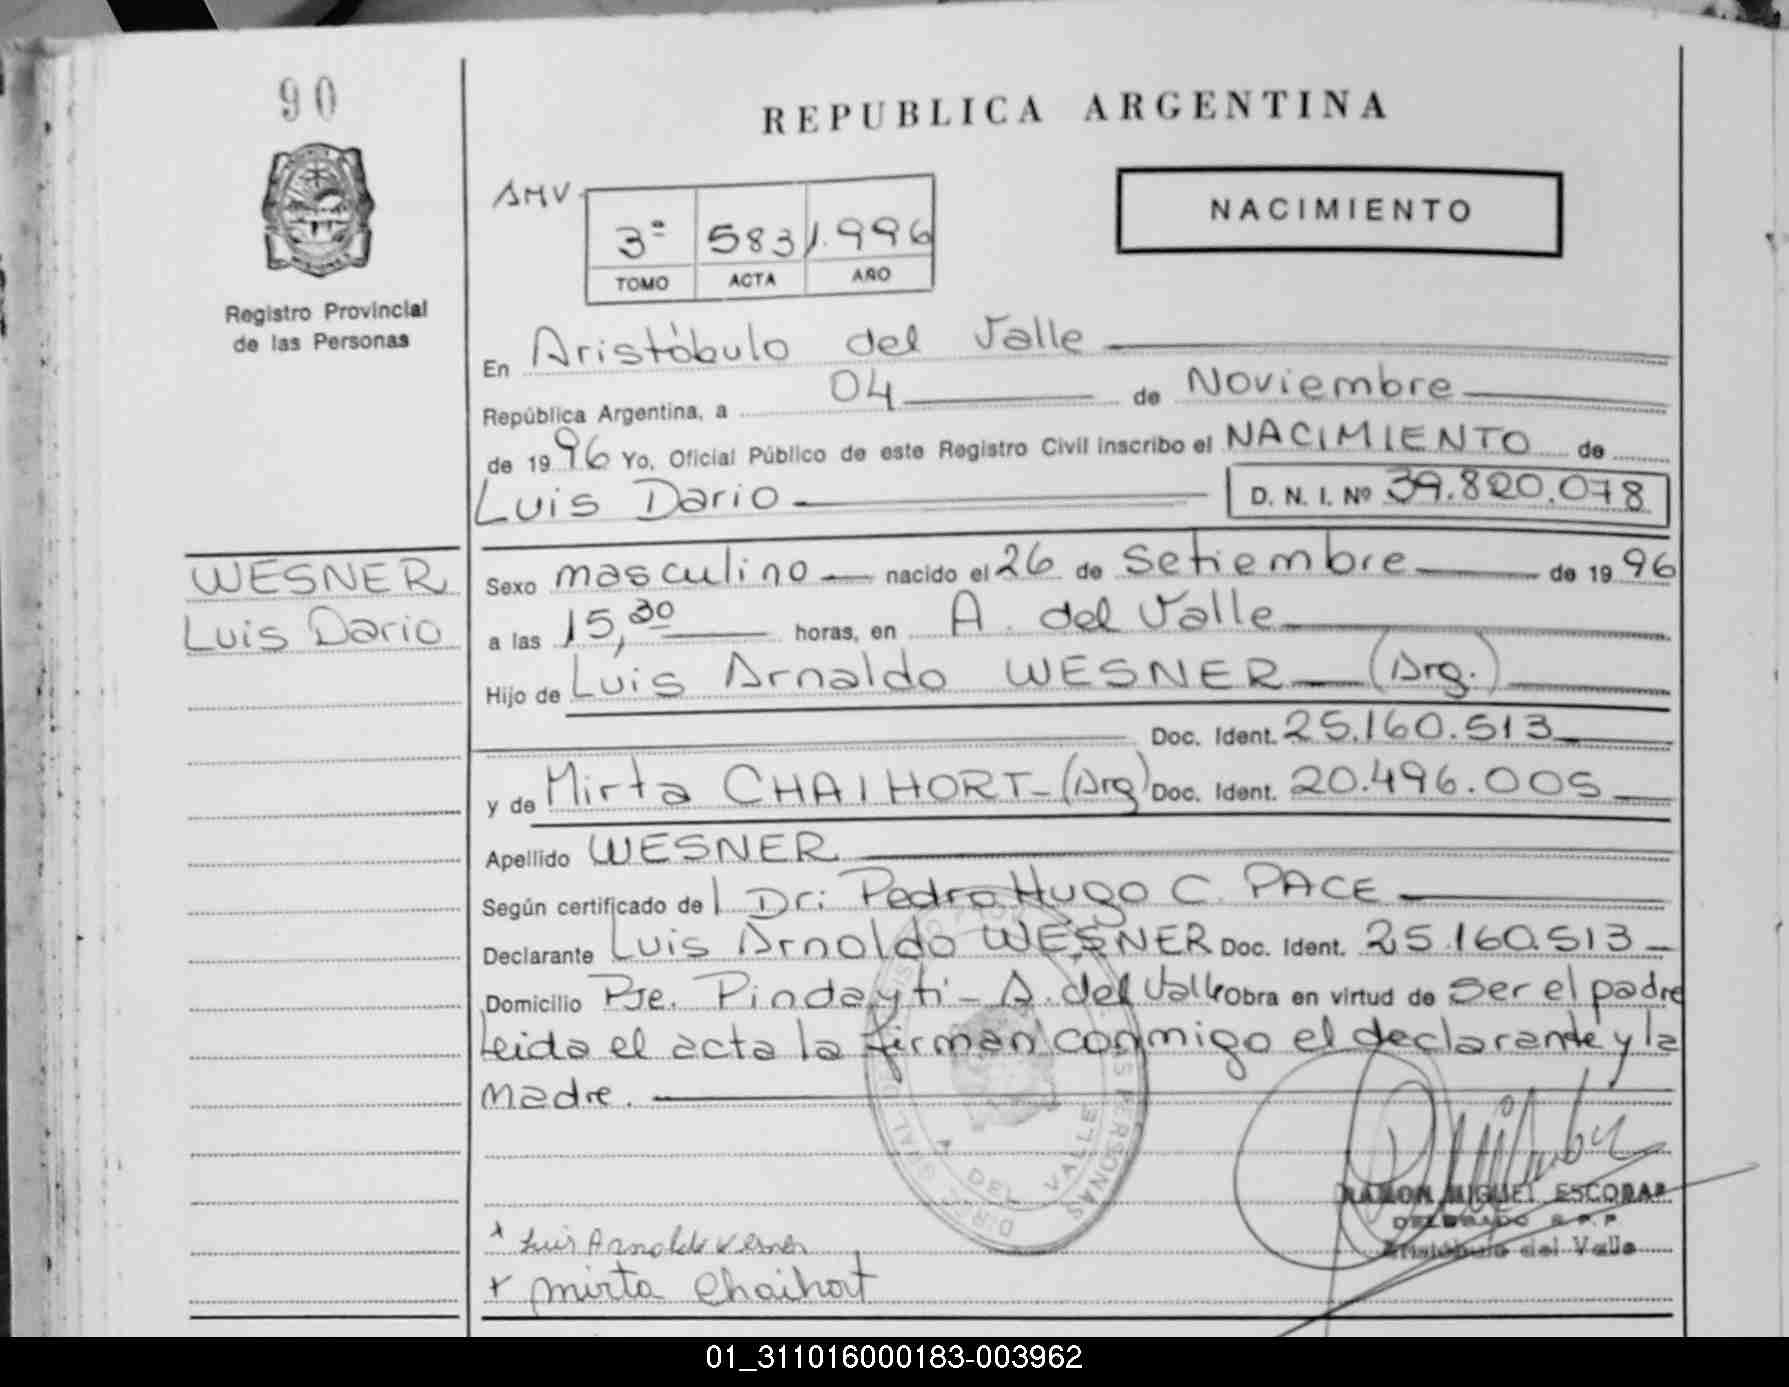 90
REPUBLICA ARGENTINA
Registro Provincial
de las Personas
AMV.
3º 583 1.996
TOMO ACTA AÑO
NACIMIENTO
En Aristóbulo del Valle
República Argentina, a 04 de Noviembre
de 1996 Yo, Oficial Público de este Registro Civil inscribo el NACIMIENTO de
Luis Dario D. N. I. Nº 39.820.078
WESNER
Luis Dario
Sexo masculino nacido el 26 de Setiembre de 1996
a las 15,30 horas, en A. del Valle
Hijo de Luis Arnaldo WESNER (Arg.)
Doc. Ident. 25.160.513
y de Mirta CHAIHORT - (Arg) Doc. Ident. 20.496.005
Apellido WESNER
Según certificado de Dr: Pedro Hugo C. PACE
Declarante Luis Arnoldo WESNER Doc. Ident. 25.160.513
Domicilio Pje. Pindayti - A. del Valle Obra en virtud de ser el padre
Leida el acta la firman conmigo el declarante y la
madre.
A DEL VALLE
RAMON MIGUEL ESCOBAR
DELEGADO R.P.P
Aristóbulo del Valle
+ Luis Arnoldo Wesner
+ Mirta Chaihort
01_311016000183-003962